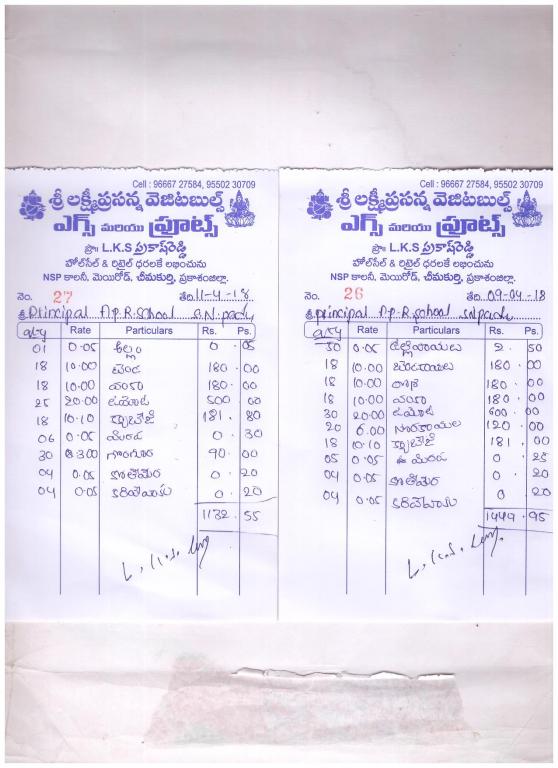 Cell : 96667 27584, 95502 30709
శ్రీ లక్ష్మీప్రసన్న వెజిటబుల్స్
ఎగ్స్ మరియు ఫ్రూట్స్
ప్రొ: L.K.S ప్రకాష్‌రెడ్డి
హోల్‌సేల్ & రిటైల్ ధరలకే లభించును
NSP కాలనీ, మెయిన్‌రోడ్, చీమకుర్తి, ప్రకాశంజిల్లా.
నెం. 27 తేది. 11-4-18
శ్రీ Principal A.P.R. School S.N. padu
Qty Rate Particulars Rs. Ps.
01 0.05 అల్లం 0.05
18 10.00 బెండ 180.00
18 10.00 వంకా 180.00
25 20.00 టమోట 500 00
18 10.10 క్యాబేజి 181.80
06 0.05 మిరప 0.30
30 3.00 గోంగూర 90.00
04 0.05 కొతిమెర 0.20
04 0.05 కరివేపాకు 0.20
1132.55
L.K.S.
Cell : 96667 27584, 95502 30709
శ్రీ లక్ష్మీప్రసన్న వెజిటబుల్స్
ఎగ్స్ మరియు ఫ్రూట్స్
ప్రొ: L.K.S ప్రకాష్‌రెడ్డి
హోల్‌సేల్ & రిటైల్ ధరలకే లభించును
NSP కాలనీ, మెయిన్‌రోడ్, చీమకుర్తి, ప్రకాశంజిల్లా.
నెం. 26 తేది. 09-04-18
శ్రీ Principal A.P.R. School S.N padu
Qty Rate Particulars Rs. Ps.
50 0.05 ఉల్లిపాయలు 2.50
18 10.00 180.00
18 10.00 దోస 180.00
18 10.00 వంకా 180.00
30 20.00 టమోట 600.00
20 6.00 సొరకాయల 120.00
18 10.10 క్యాబేజి 181.00
05 0.05 ప మిరప 0.25
04 0.05 కొతిమెర 0.20
04 0.05 కరివేపాకు 0 20
1444.95
L.K.S.